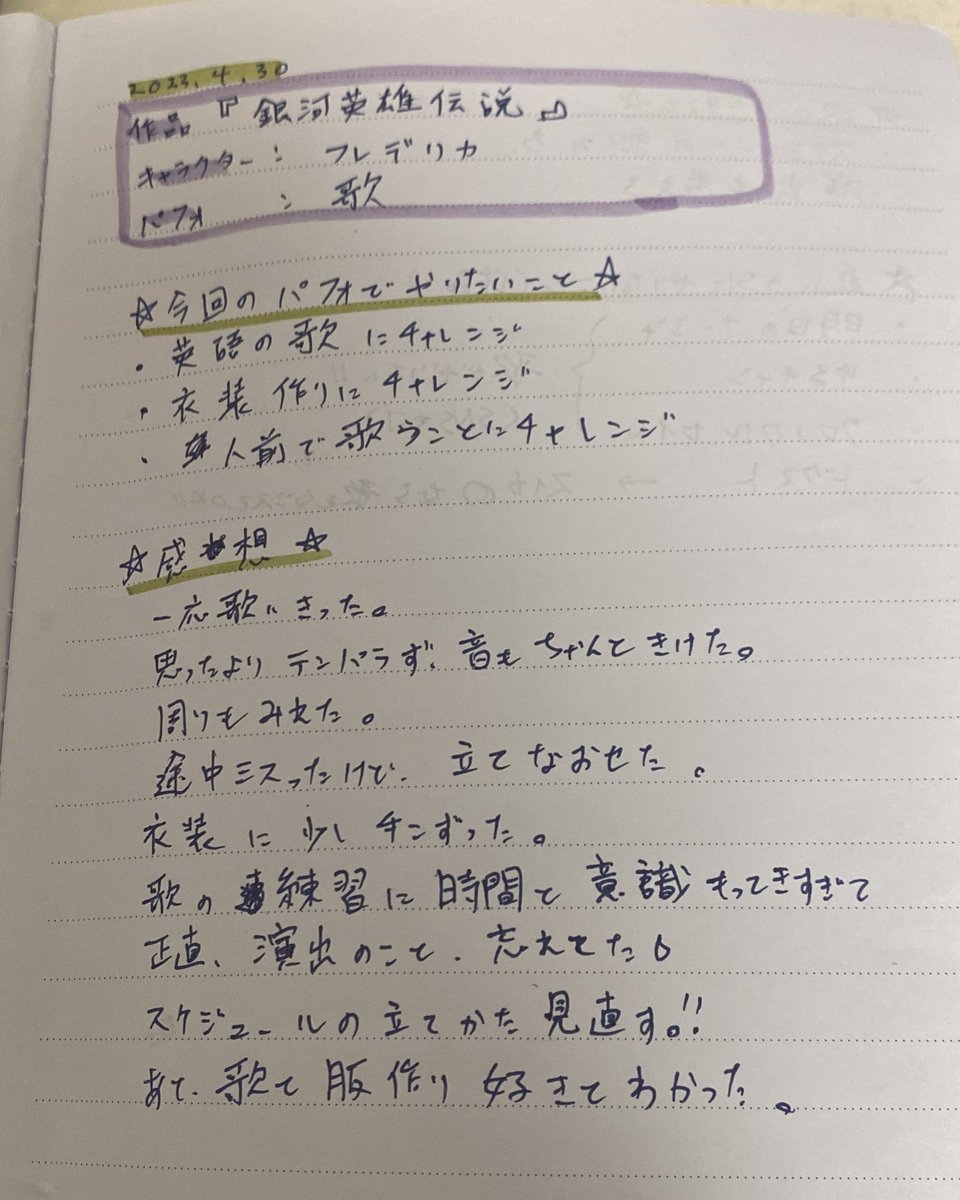 2023.4.30
作品『銀河英雄伝説』
キャラクター: フレデリカ
パフォ : 歌
☆今回のパフォでやりたいこと☆
・英語の歌にチャレンジ
・衣装作りにチャレンジ
・人前で歌うことにチャレンジ
☆感想☆
一応歌いきった。
思ったよりテンパらず、音もちゃんときけた。
周りもみれた。
途中ミスったけど、立てなおせた。
衣装に少してこずった。
歌の練習に時間と意識もってきすぎて
正直、演出のこと、忘れてた
スケジュールの立てかた見直す。!!
あと、歌と服作り好きてわかった。